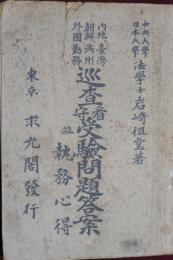 中央大學
日本大學
法學士 岩崎徂堂著
內地、臺灣
朝鮮、滿州
外國勤務
巡査看守受驗問題答案
並執務心得
東京 求光閣發行